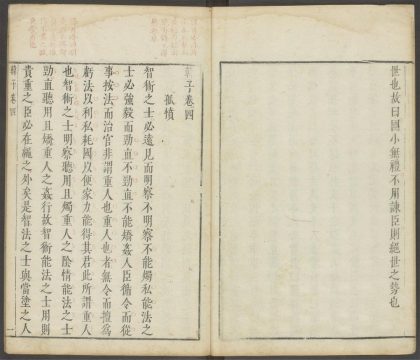 世也故曰國小無禮不用諫臣則絕世之勢也
韓子卷四
孤憤
智術之士必遠見而明察不明察不能燭私能法之
士必強毅而勁直不勁直不能矯姦人臣循令而從
事按法而治官非謂重人也重人也者無令而擅為
虧法以利私耗國以便家力能得其君此所謂重人
也智術之士明察聽用且燭重人之陰情能法之士
勁直聽用且矯重人之姦行故智術能法之士用則
貴重之臣必在繩之外矣是智法之士與當塗之人
韓子卷四
一